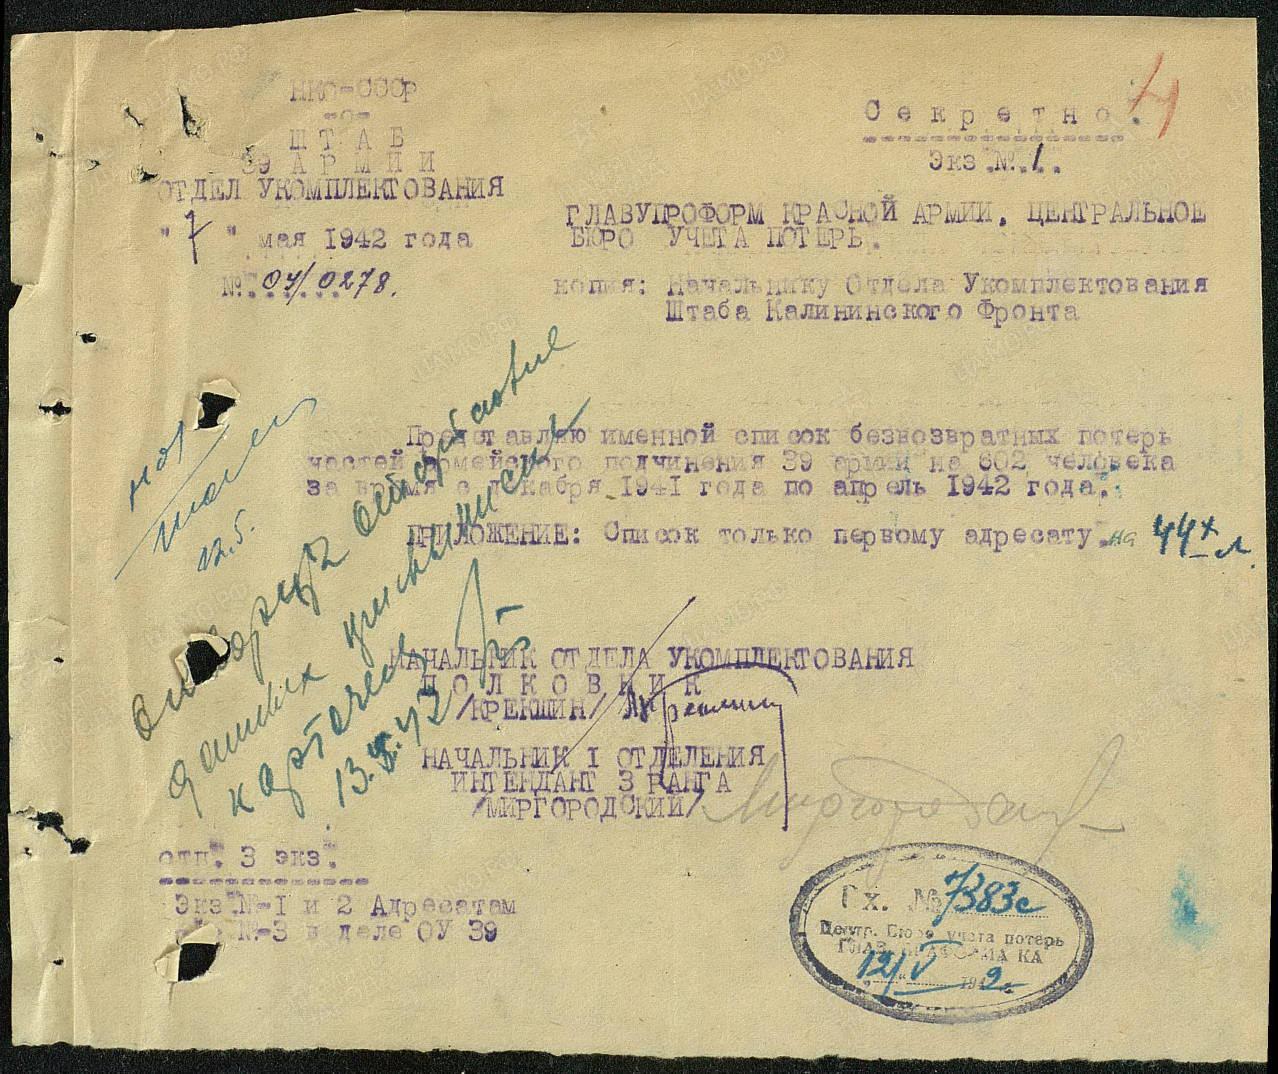 НКО-СССР
-о-
ШТАБ
39 АРМИИ
ОТДЕЛ УКОМПЛЕКТОВАНИЯ
"7" мая 1942 года
№ 04/0278.
4
Секретно.
Экз.№.1.
ГЛАВУПРОФОРМ КРАСНОЙ АРМИИ. ЦЕНТРАЛЬНОЕ
БЮРО УЧЕТА ПОТЕРЬ.
копия: Начальнику Отдела Укомплектования
Штаба Калининского Фронта
Представляю именной список безвозвратных потерь
частей армейского подчинения 39 армии на 602 человека
за время с декабря 1941 года по апрель 1942 года.
ПРИЛОЖЕНИЕ: Список только первому адресату. на 44х л.
12.5.
картотеку
13.5.42
НАЧАЛЬНИК ОТДЕЛА УКОМПЛЕКТОВАНИЯ
ПОЛКОВНИК
/КРЕКШИН/
НАЧАЛЬНИК I ОТДЕЛЕНИЯ
ИНТЕНДАНТ 3 РАНГА
/МИРГОРОДСКИЙ/
отп. 3 экз.
Экз.№-I и 2 Адресатам
№-3 в деле ОУ 39
Вх. № 7383с
Центр. Бюро учета потерь
12/V 1942
ЦАМО.РФ